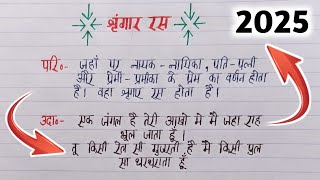 श्रृंगार रस
2025
परि०- जहां पर नायक-नायिका, पति-पत्नी
और प्रेमी-प्रेमीका के प्रेम का वर्णन होता
है। वहा श्रृंगार रस होता है।
उदा०- एक जंगल है तेरी आखों में मैं जहा राह
भूल जाता हूँ।
तू किसी रेल सी गुजरती है मैं किसी पुल
सा थरथराता हूँ